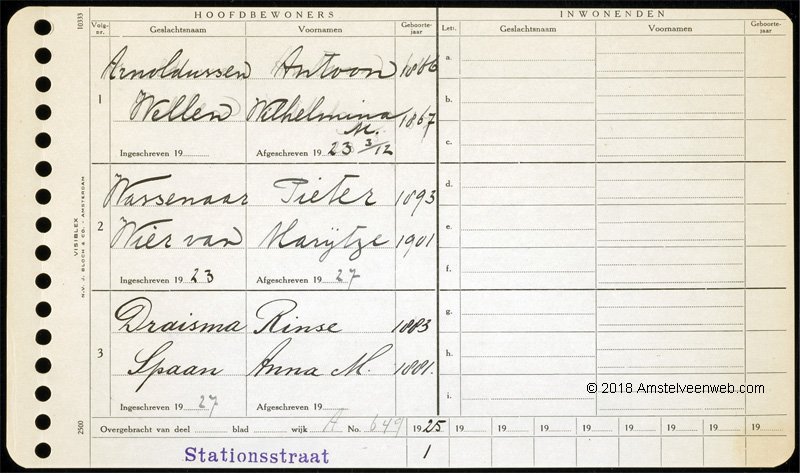 HOOFDBEWONERS INWONENDEN
Volg-nr. Geslachtsnaam Voornamen Geboorte-jaar Lett. Geslachtsnaam Voornamen Geboorte-jaar
10333
Arnoldussen Antoon 1886 a.
1
Wellen Wilhelmina M. 1867 b.
Ingeschreven 19 Afgeschreven 19 23 3/12 c.
Wassenaar Pieter 1893 d.
2
Wier van Marijtze 1901 e.
Ingeschreven 19 23 Afgeschreven 19 27 f.
VISIBLEX
N.V. J. BLOCH & CO. - AMSTERDAM
Draisma Rinse 1883 g.
3
Spaan Anna M. 1881. h.
Ingeschreven 19 27 Afgeschreven 19 i.
© 2018 Amstelveenweb.com
2500
Overgebracht van deel blad wijk A No. 649 1925 19 19 19 19 19 19 19 19
Stationsstraat 1